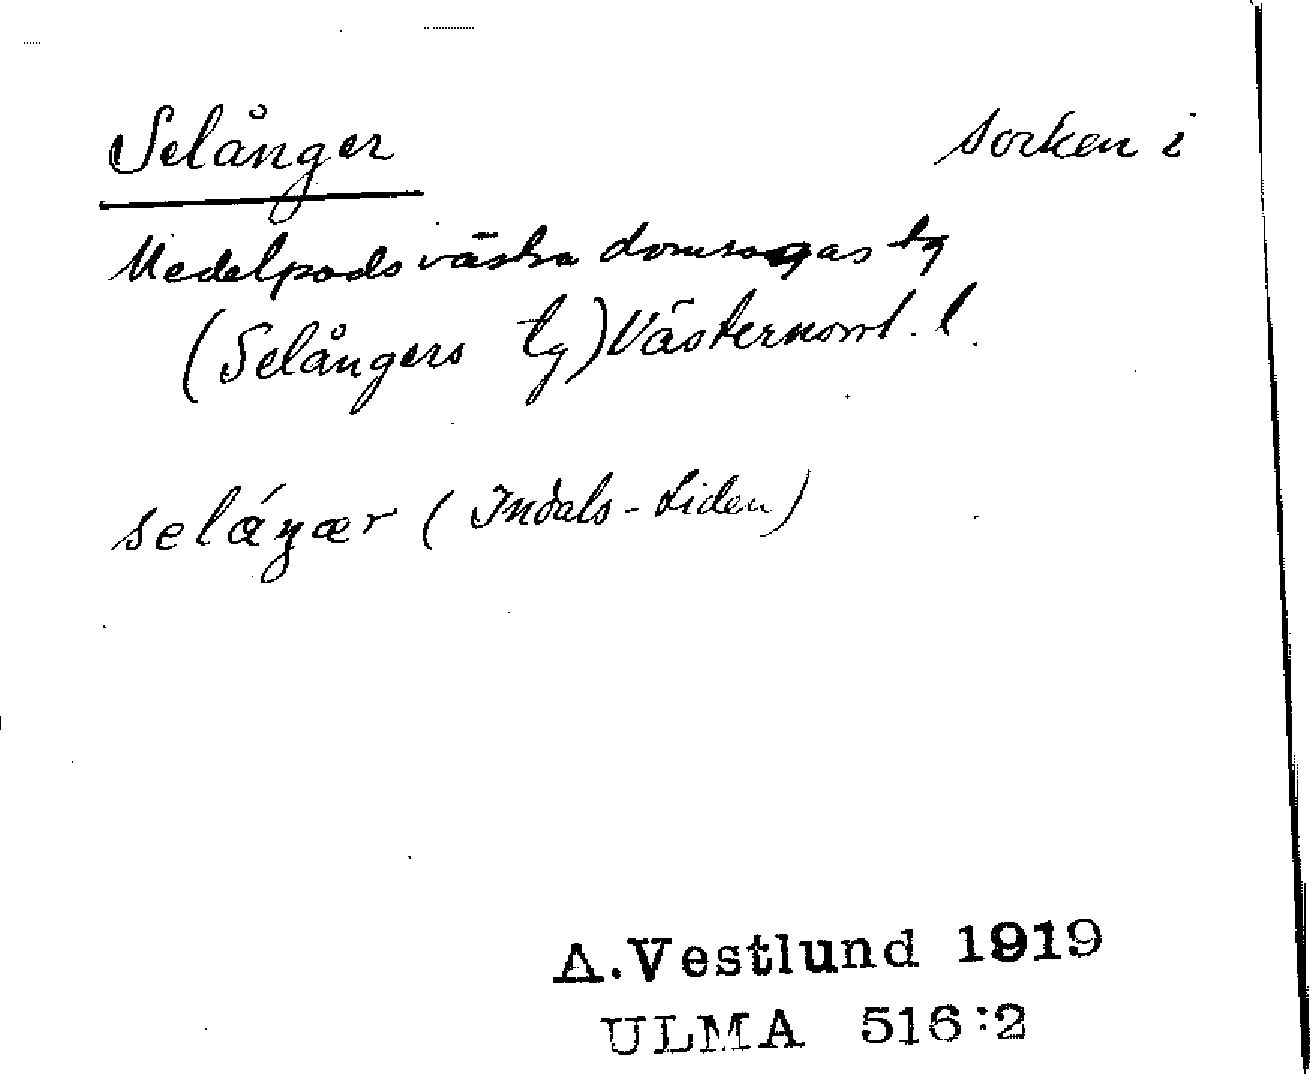 Selånger socken i
Medelpads västra domsagas tg
(Selångers tg) Västernorrl. l.
selǻŋær (Indals-Liden)
A. Vestlund 1919
ULMA 516:2